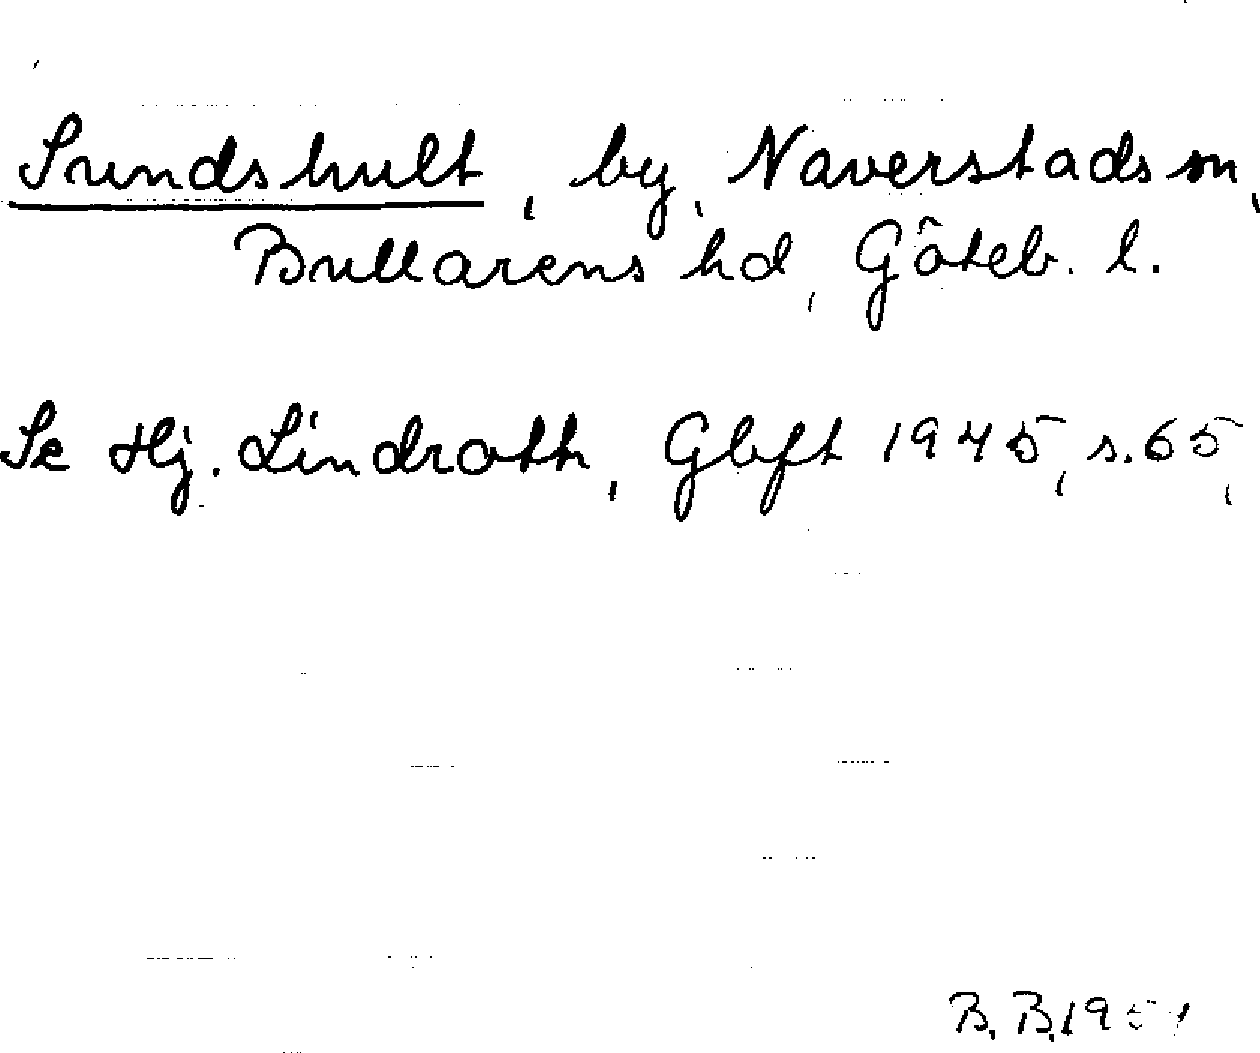 Sundshult, by, Naverstads sn,
Bullarens hd, Göteb. l.
Se Hj. Lindroth, Gbgft 1945, s. 65,
B. B. 1951